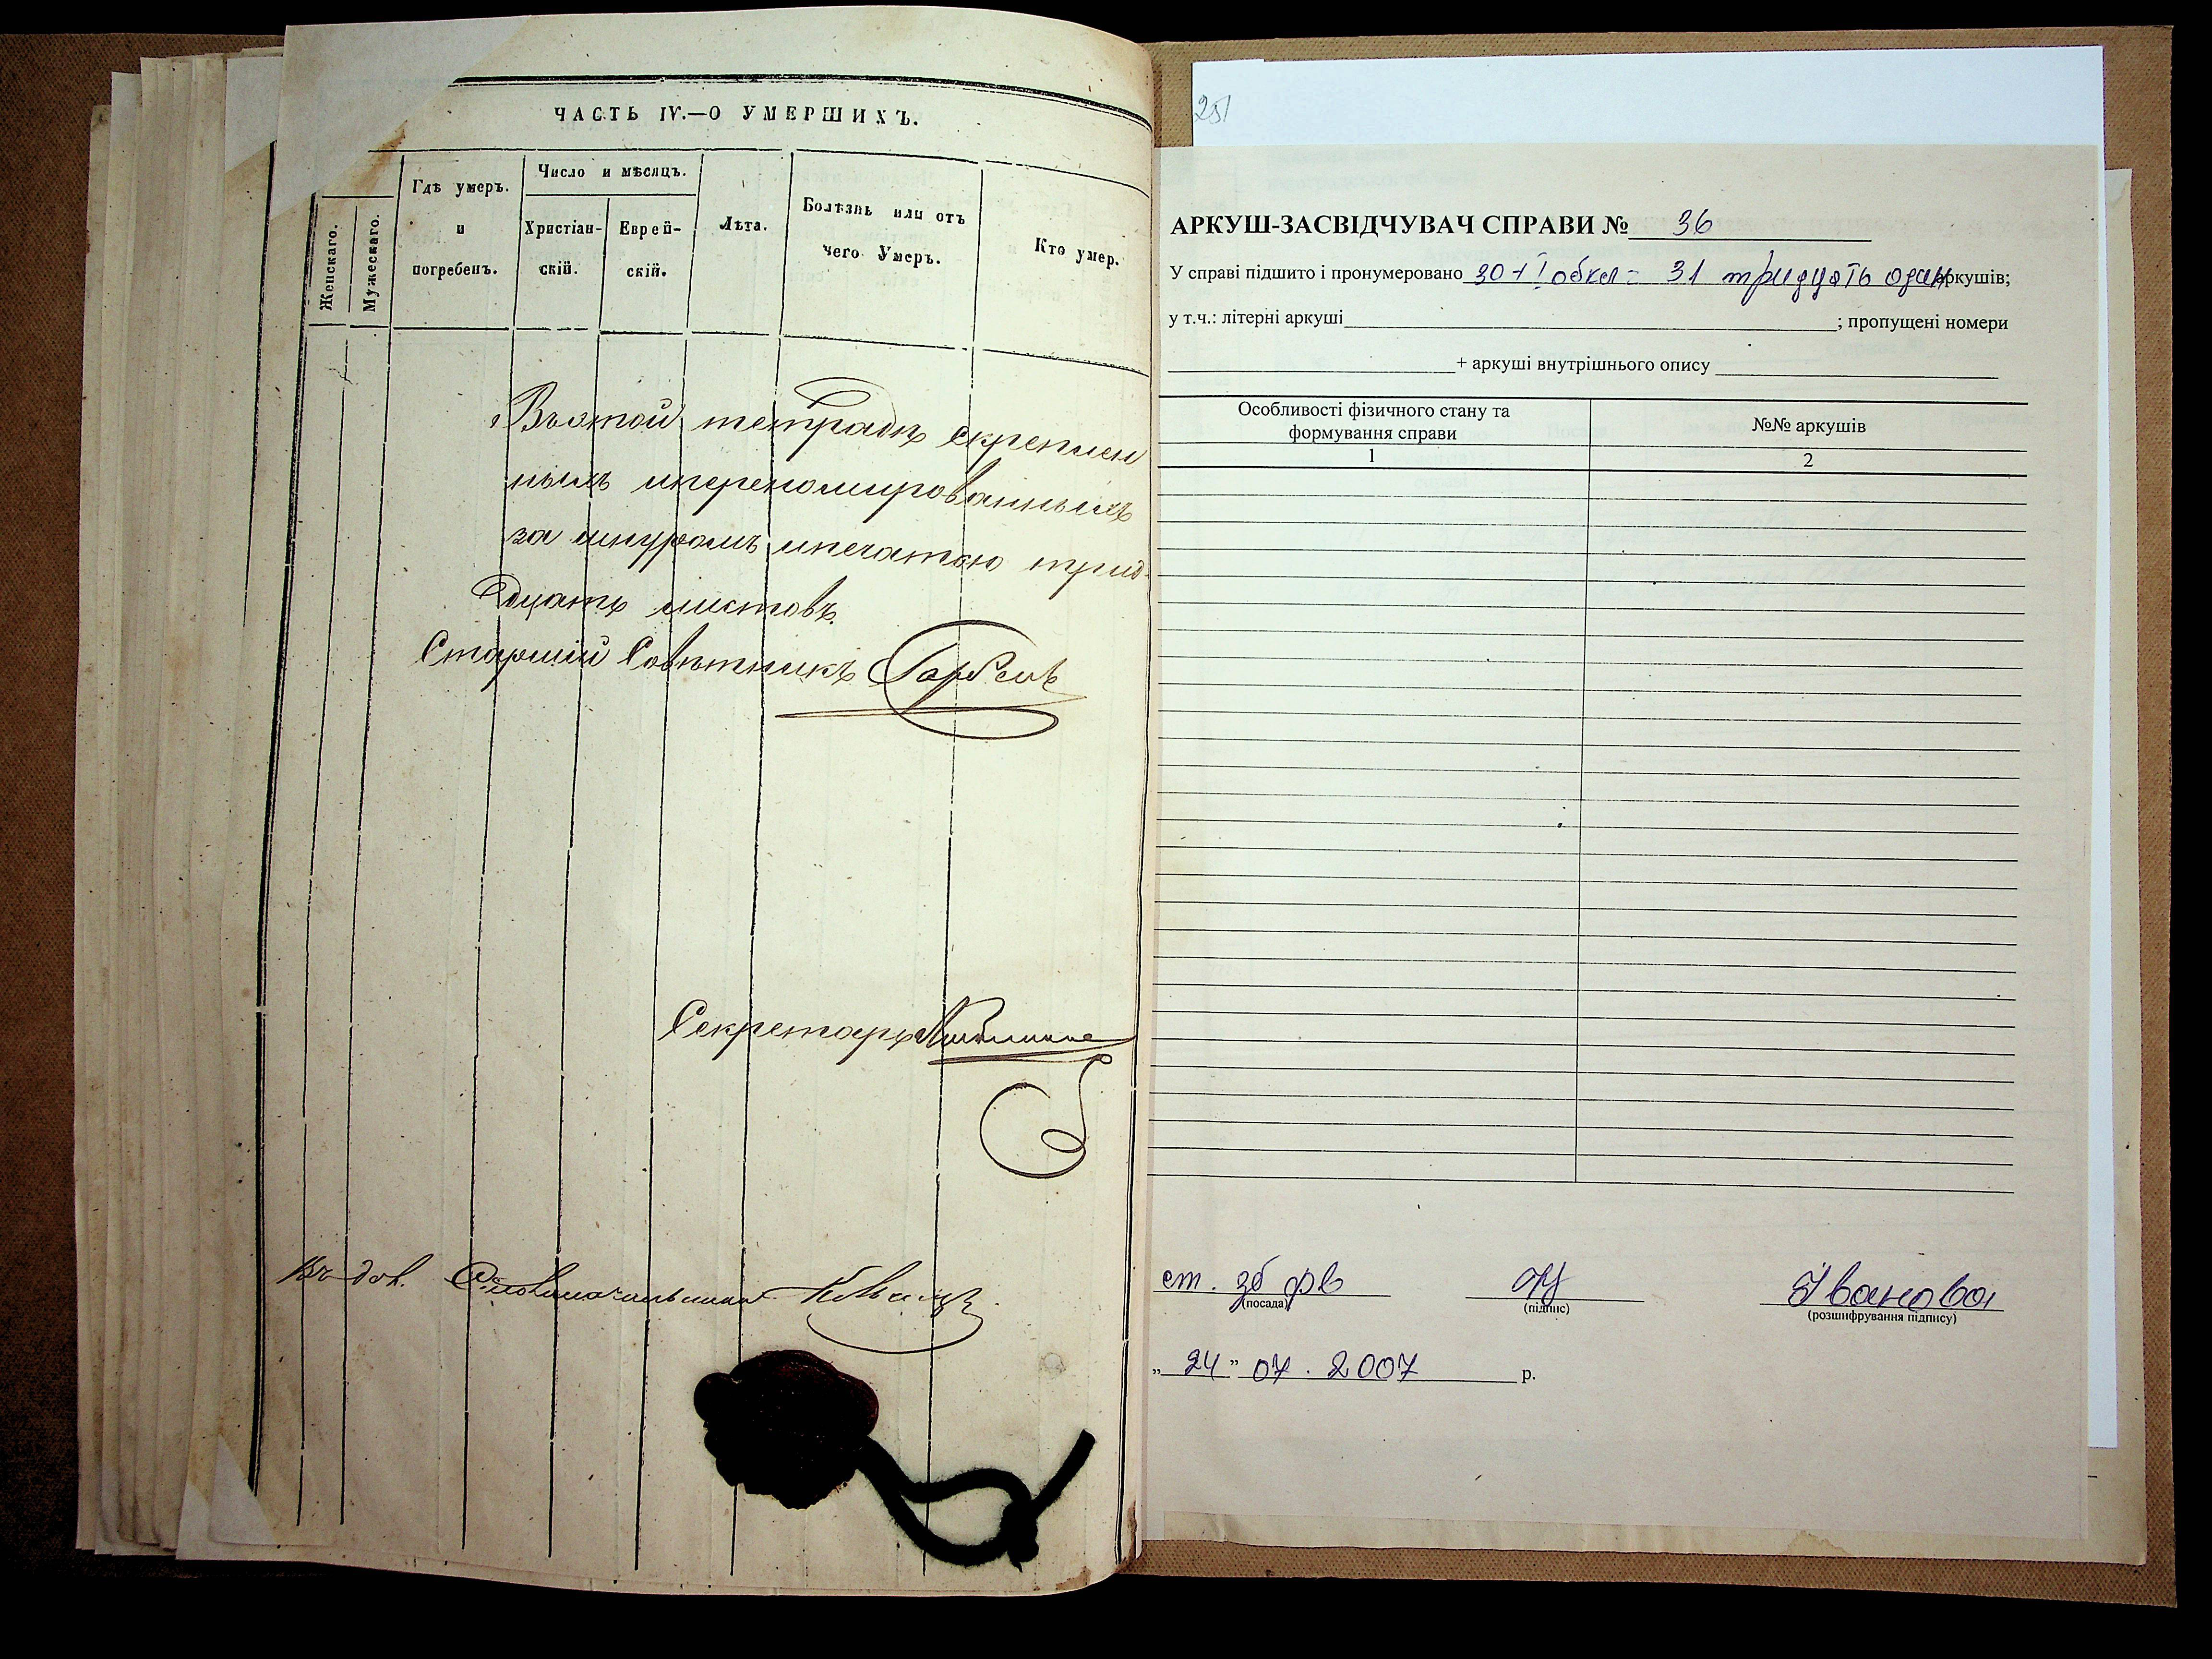 ЧАСТЬ IV.—О УМЕРШИХЪ.
Женскаго.
Мужескаго.
Гдѣ умеръ.
и
погребенъ.
Число и мѣсяцъ.
Христіан-
скій.
Еврей-
скій.
Лѣта.
Болѣзнь или отъ
чего Умеръ.
Кто умер.
Въэтой тетради скреплен
ныхъ иперенолированныхъ
за шнуромъ ипечатью трид-
цать листовъ.
Старшій Совѣтникъ
Секретарь
251
АРКУШ-ЗАСВІДЧУВАЧ СПРАВИ № 36
У справі підшито і пронумеровано 30+1 обкл = 31 тридцать один аркушів;
у т.ч.: літерні аркуші ; пропущені номери
+ аркуші внутрішнього опису
Особливості фізичного стану та
формування справи
№№ аркушів
1
2
ст. зб фв
Іванова
(посада)
(підпис)
(розшифрування підпису)
„ 24 ” 07 . 2007 р.